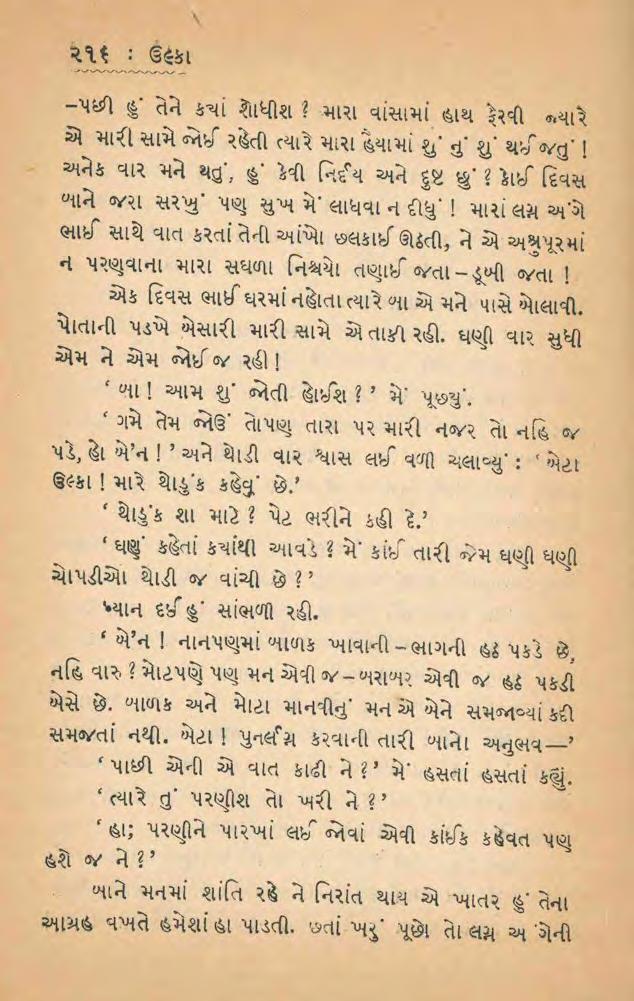 ૨૧૬ : ઉલ્કા
–પછી હું તેને કયાં શોધીશ ? મારા વાંસામાં હાથ ફેરવી જ્યારે
એ મારી સામે જોઈ રહેતી ત્યારે મારા હૈયામાં શું નું શું થઈ જતું !
અનેક વાર મને થતું, હું કેવી નિર્દય અને દુષ્ટ છું ? કોઈ દિવસ
બાને જરા સરખું પણ સુખ મેં લાધવા ન દીધું ! મારાં લગ્ન અંગે
ભાઈ સાથે વાત કરતાં તેની આંખો છલકાઈ ઊઠતી, ને એ અશ્રુપૂરમાં
ન પરણવાના મારા સઘળા નિશ્ચયો તણાઈ જતા – ડૂબી જતા !
એક દિવસ ભાઈ ઘરમાં નહોતા ત્યારે બા એ મને પાસે બોલાવી.
પોતાની પડખે બેસારી મારી સામે એ તાકી રહી. ઘણી વાર સુધી
એમ ને એમ જોઈ જ રહી !
‘ બા ! આમ શું જોતી હોઈશ ? ’ મેં પૂછયું.
‘ ગમે તેમ જોઉં તોપણ તારા પર મારી નજર તો નહિ જ
પડે, હો બે’ન ! ’ અને થોડી વાર શ્વાસ લઈ વળી ચલાવ્યું : ‘ બેટા
ઉલ્કા ! મારે થોડુંક કહેવું છે.’
‘ થોડુંક શા માટે ? પેટ ભરીને કહી દે.’
‘ ઘણું કહેતાં કયાંથી આવડે ? મેં કાંઈ તારી જેમ ઘણી ઘણી
ચોપડીઓ થોડી જ વાંચી છે ? ’
ધ્યાન દઈ હું સાંભળી રહી.
‘ બે’ન ! નાનપણમાં બાળક ખાવાની – ભાગની હઠ પકડે છે,
નહિ વારુ ? મોટપણે પણ મન એવી જ – બરાબર એવી જ હઠ પકડી
બેસે છે. બાળક અને મોટા માનવીનું મન એ બેને સમજાવ્યાં કદી
સમજતાં નથી. બેટા ! પુનર્લગ્ન કરવાની તારી બાનો અનુભવ—’
‘ પાછી એની એ વાત કાઢી ને ? ’ મેં હસતાં હસતાં કહ્યું.
‘ ત્યારે તું પરણીશ તો ખરી ને ? ’
‘ હા; પરણીને પારખાં લઈ જોવાં એવી કાંઈક કહેવત પણ
હશે જ ને ? ’
બાને મનમાં શાંતિ રહે ને નિરાંત થાય એ ખાતર હું તેના
આગ્રહ વખતે હમેશાં હા પાડતી. છતાં ખરું પૂછો તો લગ્ન અંગેની